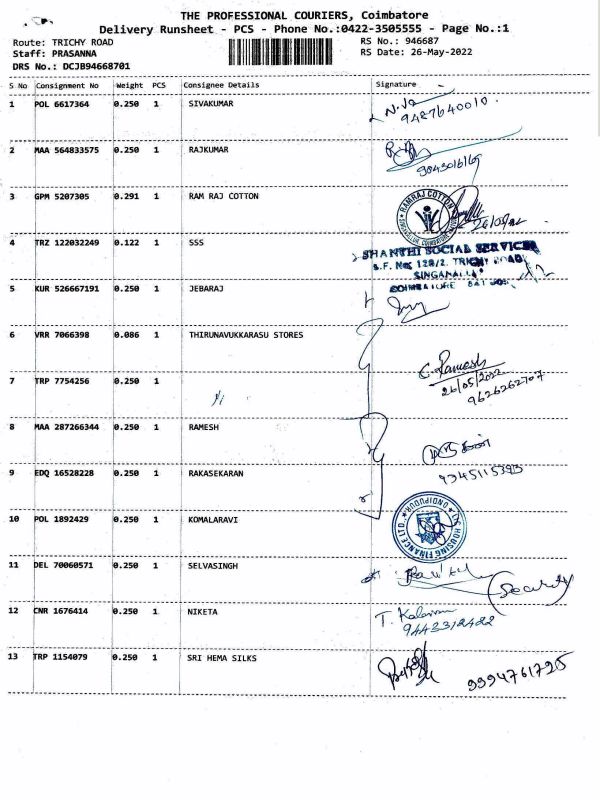 THE PROFESSIONAL COURIERS, Coimbatore
Delivery Runsheet - PCS - Phone No.:0422-3505555 - Page No.:1
Route: TRICHY ROAD RS No.: 946687
Staff: PRASANNA RS Date: 26-May-2022
DRS No.: DCJB94668701
S No Consignment No Weight PCS Consignee Details Signature
1 POL 6617364 0.250 1 SIVAKUMAR
9487640010.
2 MAA 564833575 0.250 1 RAJKUMAR
9843016169
3 GPM 5207305 0.291 1 RAM RAJ COTTON RAMRAJ COTTON
4 TRZ 122032249 0.122 1 SSS
SHANTHI SOCIAL SERVICES
S.F. No: 128/2. TRICHY ROAD
SINGANALLU
COIMBATORE
5 KUR 526667191 0.250 1 JEBARAJ
6 VRR 7066398 0.086 1 THIRUNAVUKKARASU STORES
C. Ramesh
26/05/2022
9626262707
7 TRP 7754256 0.250 1
8 MAA 287266344 0.250 1 RAMESH
9 EDQ 16528228 0.250 1 RAKASEKARAN 9345115393
10 POL 1892429 0.250 1 KOMALARAVI LIC HOUSING FINANCE LTD ONDIPUDUR
11 DEL 70060571 0.250 1 SELVASINGH
(Security)
12 CNR 1676414 0.250 1 NIKETA
9443312422
13 TRP 1154079 0.250 1 SRI HEMA SILKS
9994761725